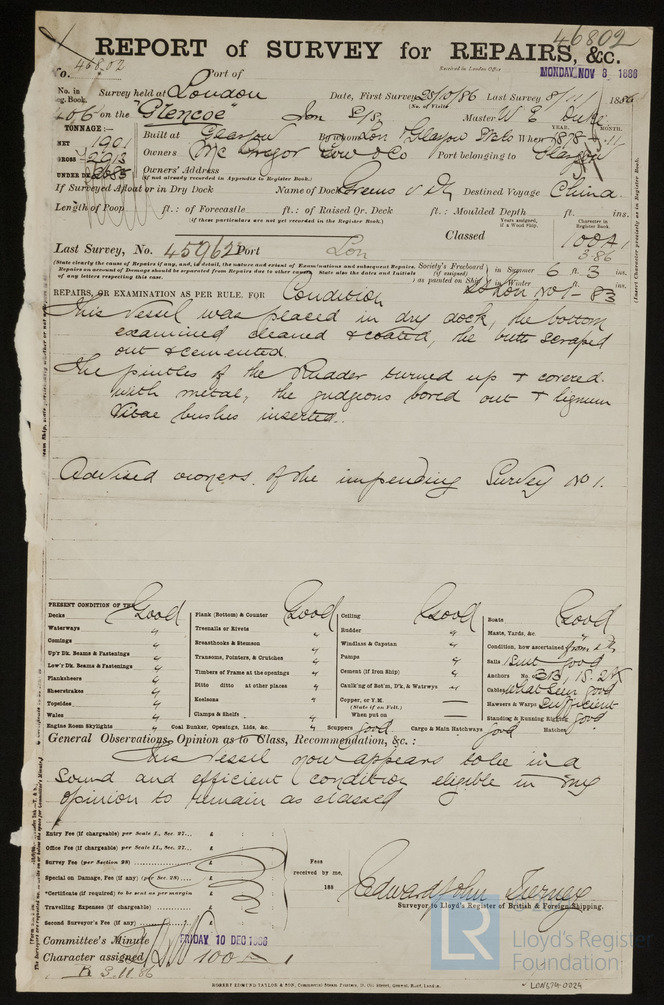 46802
REPORT of SURVEY for REPAIRS, &c.
No. 46802 Port of
Received in London Office MONDAY NOV 8, 1886
No. in Reg. Book. Survey held at London Date, First Survey 25/10/86 Last Survey 8/11/ 1886
(No. of Visits)
406 on the "Glencoe" Iron S/S Master W E Duke
TONNAGE:—
NET 1901
GROSS 2913
UNDER DK 2685
YEAR. MONTH.
Built at Glasgow By whom Lon & Glasgow When 1878 - 11
Owners McGregor Gow & Co Port belonging to Glasgow
Owners' Address
(If not already recorded in Appendix to Register Book.)
If Surveyed Afloat or in Dry Dock Name of Dock Destined Voyage China
Length of Poop ft.: of Forecastle ft.: of Raised Qr. Deck ft.: Moulded Depth ft. ins.
(if these particulars are not yet recorded in the Register Book.)
Classed Character in Register Book 100A1
3.86
Last Survey, No. 45962 Port Lon
(State clearly the cause of Repairs if any, and, in detail, the nature and extent of Examinations and subsequent Repairs.
Repairs on account of Damage should be separated from Repairs due to other causes. State also the dates and Initials
of any letters respecting this case.
Society's Freeboard (if assigned) as painted on Ship in Summer 6 ft. 3 ins.
in Winter ft. ins.
SS Lon No 1 - 83
REPAIRS, OR EXAMINATION AS PER RULE. FOR Condition
This Vessel was placed in dry dock, the bottom
examined cleaned & coated, the butts scraped
out & cemented.
The pintles of the Rudder turned up & covered
with metal, the gudgeons bored out & lignum
Vitae bushes inserted.
Advised owners of the impending Survey No 1.
PRESENT CONDITION OF THE
Decks Good
Waterways "
Comings "
Up'r Dk. Beams & Fastenings "
Low'r Dk. Beams & Fastenings "
Planksheers "
Sheerstrakes "
Topsides "
Wales "
Engine Room Skylights "
Plank (Bottom) & Counter Good
Treenails or Rivets "
Breasthooks & Stemson "
Transoms, Pointers, & Crutches "
Timbers of the Frame at openings "
Ditto ditto at other places "
Keelsons "
Clamps & Shelfs "
Coal Bunker, Openings, Lids, &c. "
Ceiling Good
Rudder "
Windlass & Capstan "
Pumps "
Cement (if Iron Ship) "
Caulk'ng of Bot'm, D'k, & Waterwys "
Copper, or Y.M. —
(State if on Felt.)
When put on —
Scuppers good Cargo & Main Hatchways good Hatches
Boats Good
Masts, Yards, &c.
Condition, how ascertained from Dk
Sails Suit good
Anchors No. 3B, 1S. 2K
Cables what seen good
Hawsers & Warps sufficient
Standing & Running Rigging good
General Observations, Opinion as to Class, Recommendation, &c. :
This Vessel now appears to be in a
Sound and efficient condition eligible in my
opinion to remain as classed
Entry Fee (if chargeable) per Scale I., Sec. 27... £
Office Fee (if chargeable) per Scale II., Sec. 27... £
Survey Fee (per Section 28) £
Special on Damage, Fee (if any) (per Sec. 28) £
*Certificate (if required) to be sent as per margin £
Travelling Expenses (if chargeable) £
Second Surveyor's Fee (if any) £
Fees received by me, 188
Edward John Tierney
Surveyor to Lloyd's Register of British & Foreign Shipping.
Committee's Minute FRIDAY 10 DEC 1886
Character assigned 100 A 1
3.11.86
ROBERT EDMUND TAYLOR & SON
LR Lloyd's Register
Foundation
LON574-0024